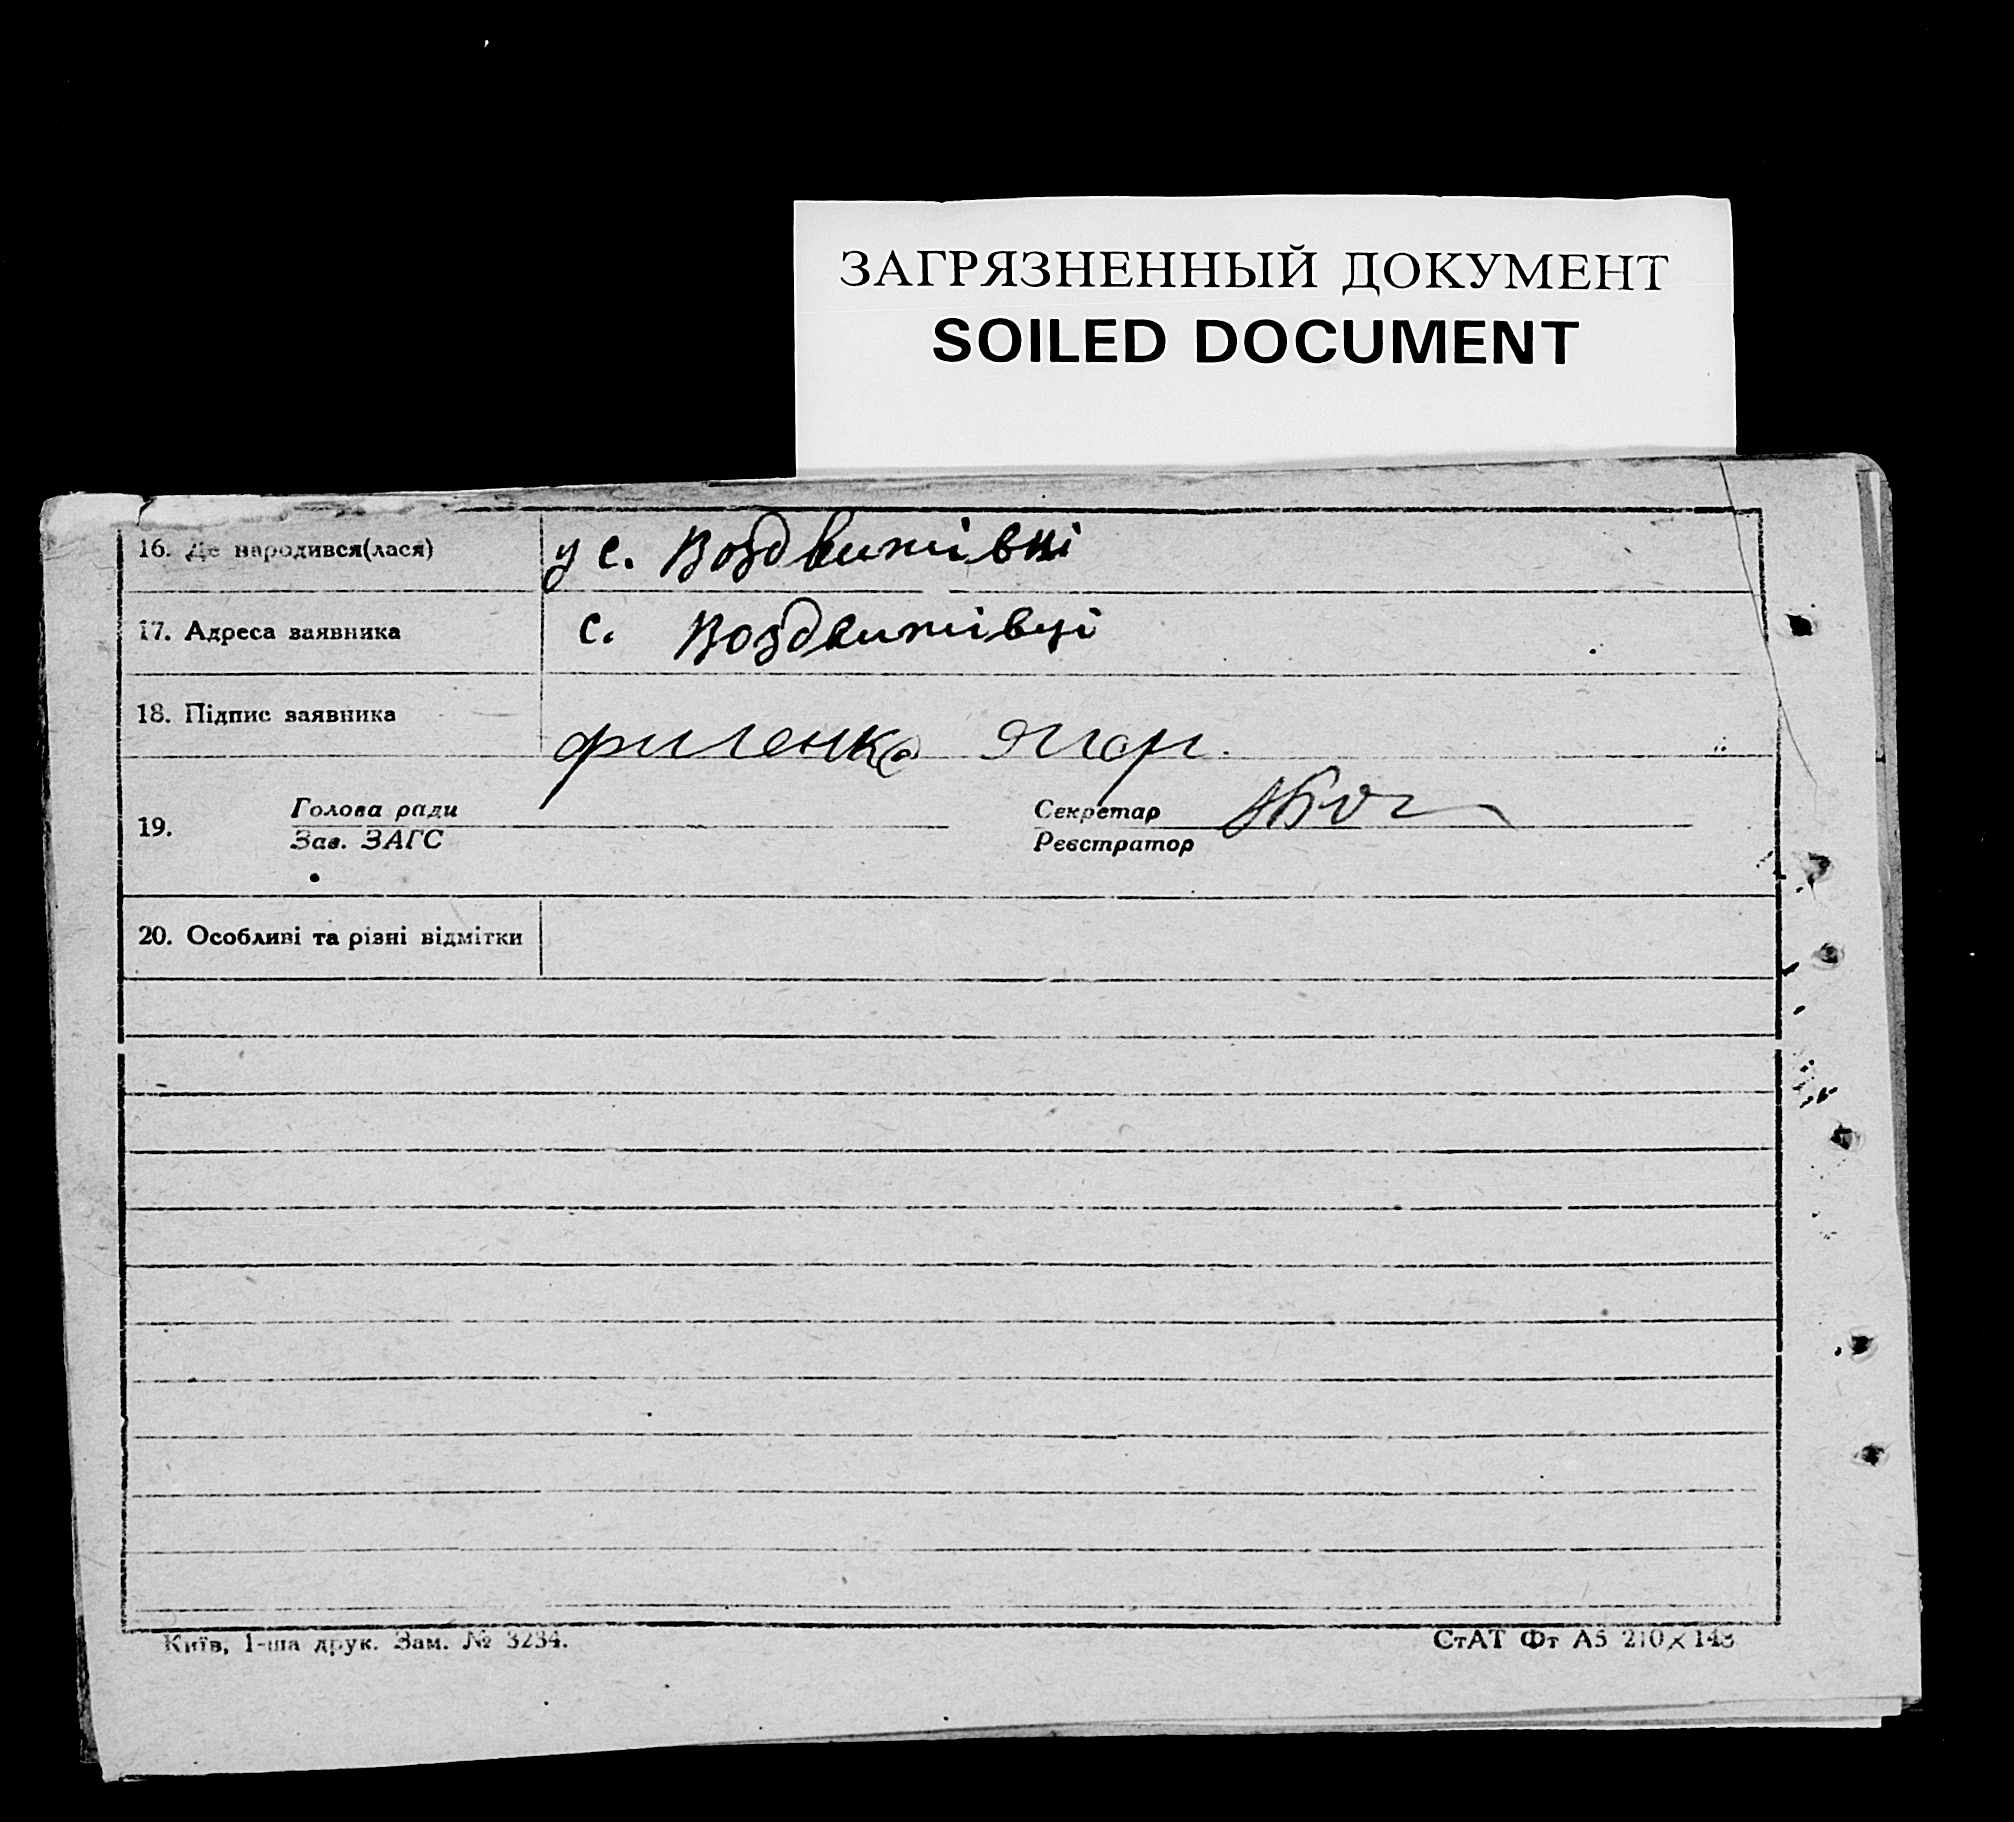 ЗАГРЯЗНЕННЫЙ ДОКУМЕНТ
SOILED DOCUMENT
16. Де народився(лася) у с. Воздвижівці
17. Адреса заявника с. Воздвижівці
18. Підпис заявника Филенко Ягор.
19. Голова ради Секретар
Зав. ЗАГС Реєстратор
20. Особливі та різні відмітки
Київ, 1-ша друк. Зам. № 3234.
СтАТ Фт А5 210×148